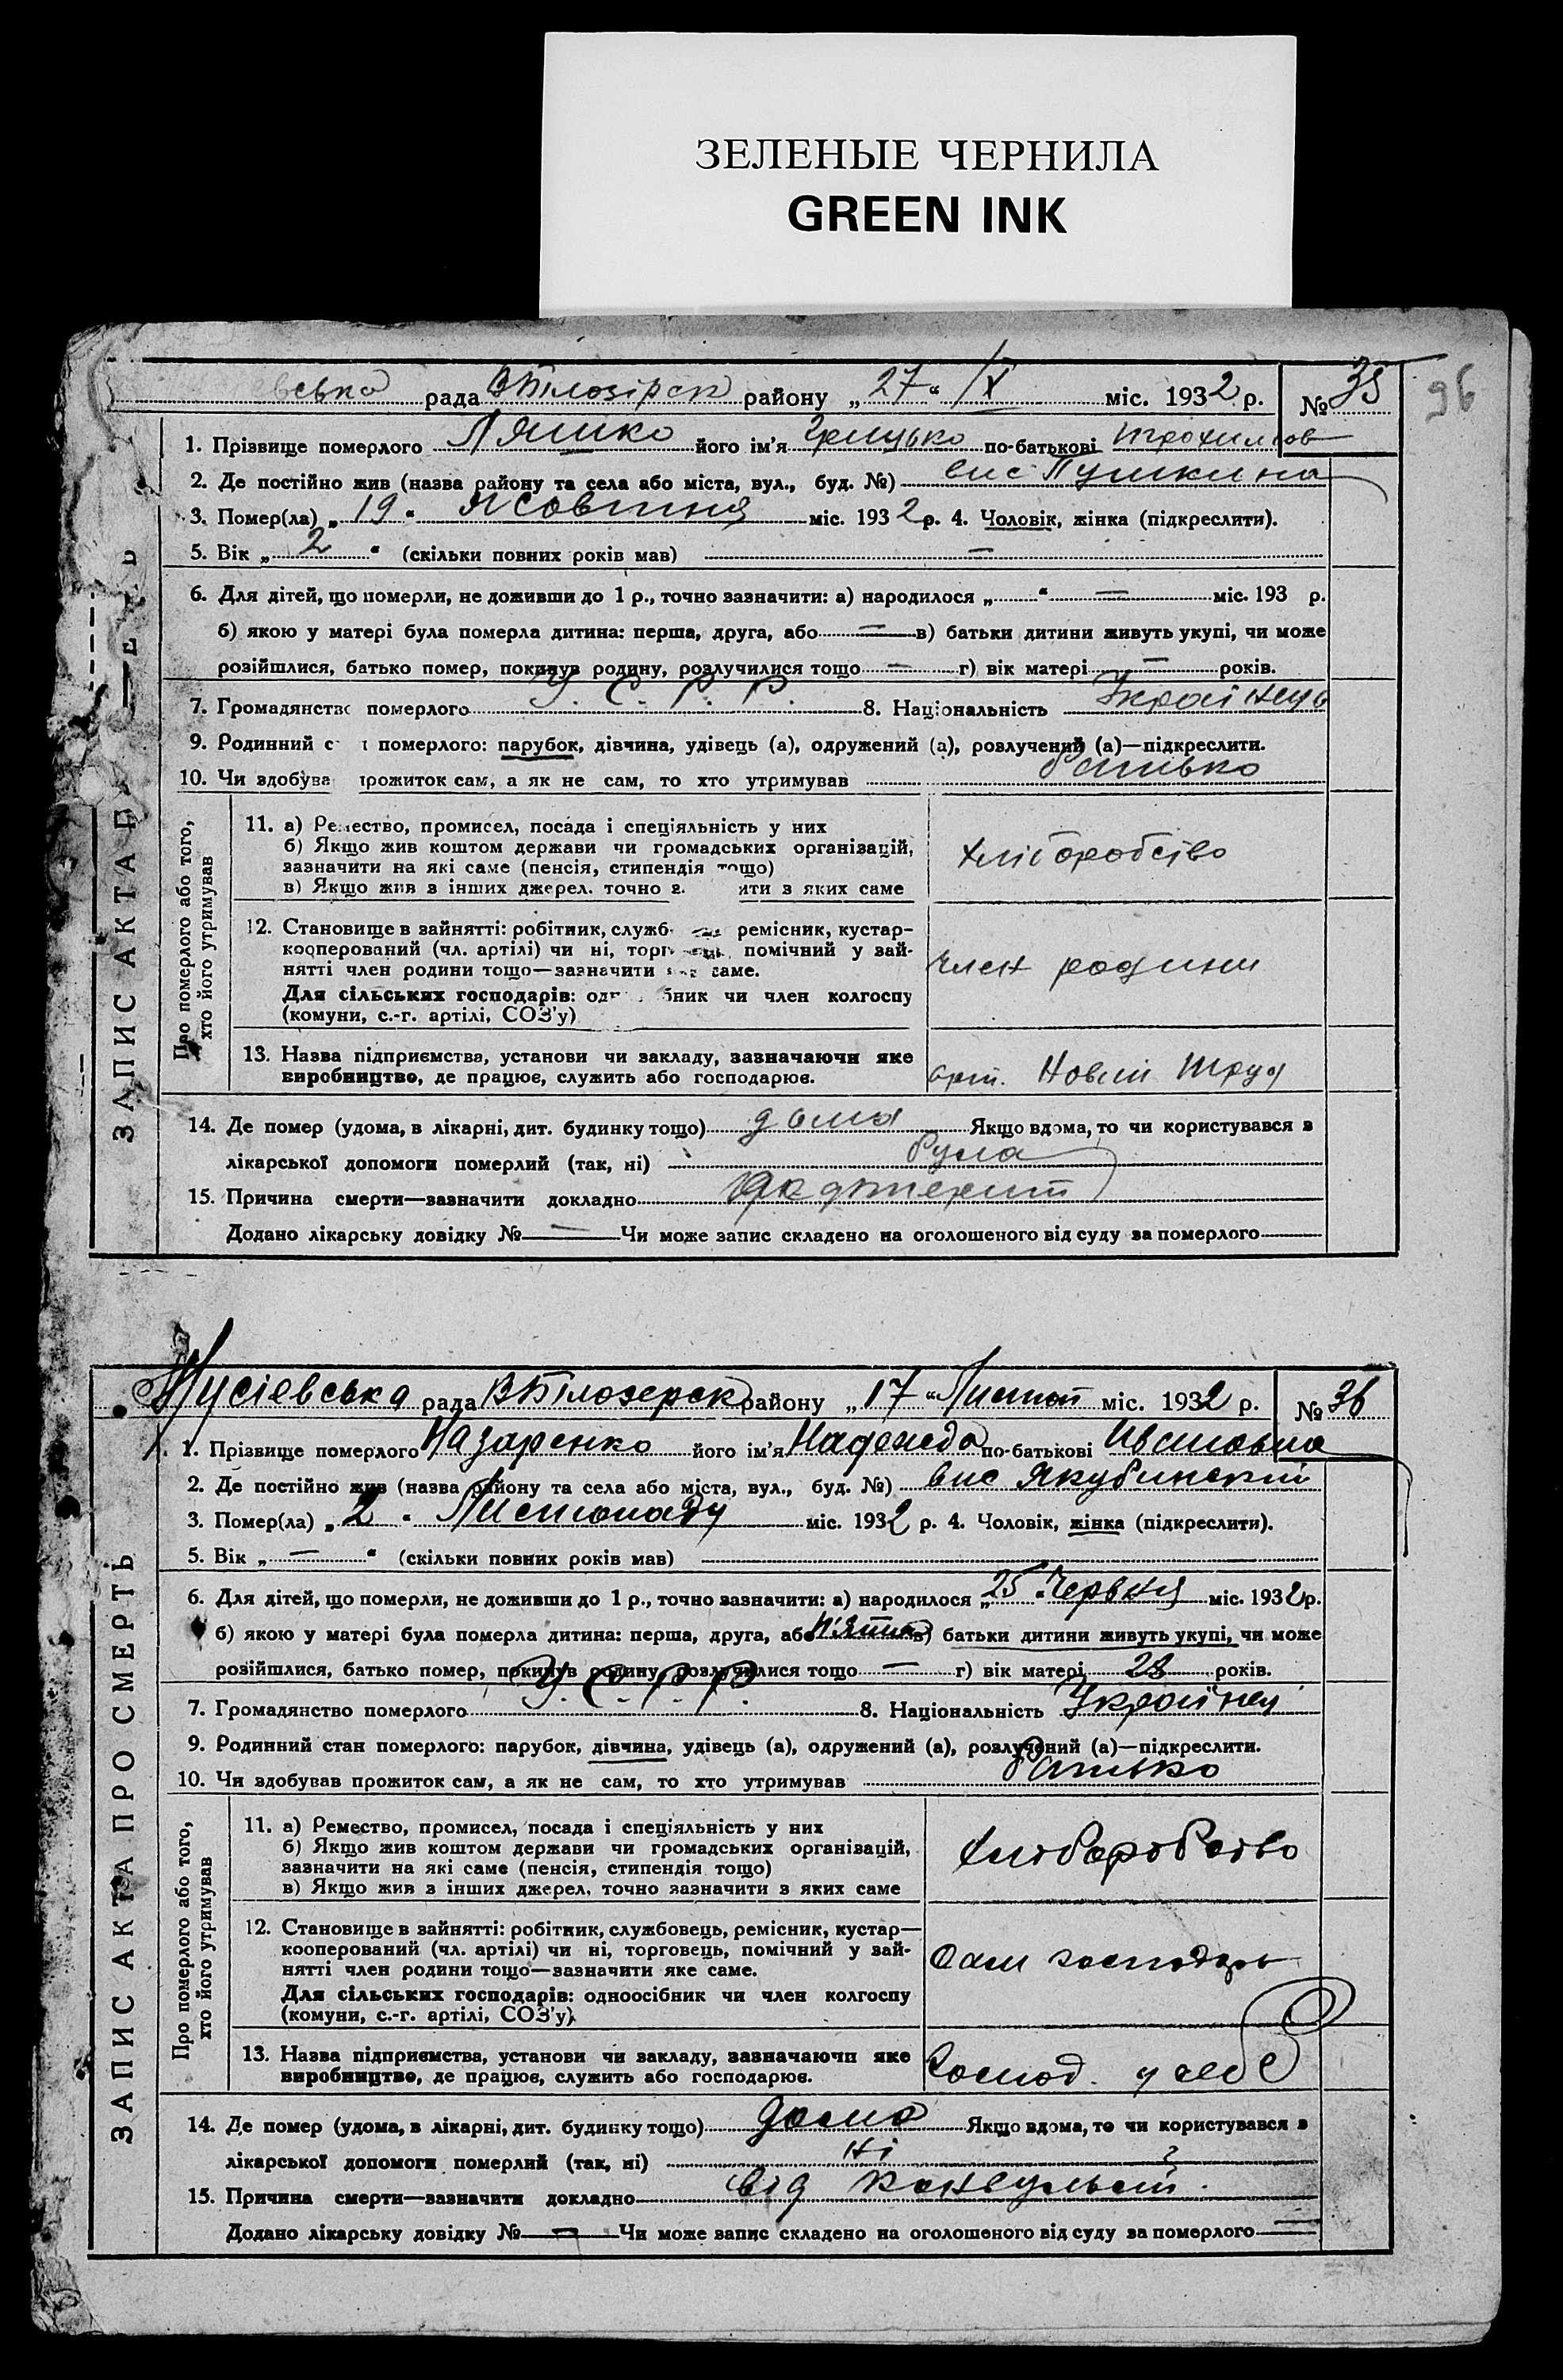 ЗЕЛЕНЫЕ ЧЕРНИЛА
GREEN INK
96
євська рада ВБілозірск району „27“ IX міс. 1932 р. № 35
1. Прізвище померлого Ляшко його ім'я Грицько по-батькові Трохимов
2. Де постійно жив (назва району та села або міста, вул., буд. №) вис Пушкина
3. Помер(ла) „19“ Жовтня міс. 1932 р. 4. Чоловік, жінка (підкреслити).
5. Вік „2“ (скільки повних років мав) —
6. Для дітей, що померли, не доживши до 1 р., точно зазначити: а) народилося „ “ — міс. 193 р.
б) якою у матері була померла дитина: перша, друга, або — в) батьки дитини живуть укупі, чи може
розійшлися, батько помер, покинув родину, розлучилися тощо — г) вік матері — років.
7. Громадянство померлого У. С. Р. Р. 8. Національність Украінець
9. Родинний с т померлого: парубок, дівчина, удівець (а), одружений (а), розлучений (а)—підкреслити.
10. Чи здобува прожиток сам, а як не сам, то хто утримував батько
ЗАПИС АКТА
Про померлого або того, хто його утримував
11. а) Ремество, промисел, посада і спеціяльність у них
б) Якщо жив коштом держави чи громадських організацій,
зазначити на які саме (пенсія, стипендія тощо)
в) Якщо жив з інших джерел. точно з ити з яких саме
хліборобство
12. Становище в зайнятті: робітник, служб ремісник, кустар-
кооперований (чл. артілі) чи ні, торг помічний у зай-
нятті член родини тощо—зазначити саме.
Для сільських господарів: од бник чи член колгоспу
(комуни, с.-г. артілі, СОЗ'у)
член родини
13. Назва підприємства, установи чи закладу, зазначаючи яке
виробництво, де працює, служить або господарює.
арт. Новий Труд
14. Де помер (удома, в лікарні, дит. будинку тощо) дома Якщо вдома, то чи користувався з
лікарської допомоги померлий (так, ні) була
15. Причина смерти—зазначити докладно
Додано лікарську довідку № — Чи може запис складено на оголошеного від суду за померлого
Мусієвська рада ВБілозерск району „17“ Листоп міс. 1932 р. № 36
1. Прізвище померлого Назаренко його ім'я Надежда по-батькові Ивановна
2. Де постійно жив (назва району та села або міста, вул., буд. №) вис Якубинский
3. Помер(ла) „2“ Листопаду міс. 1932 р. 4. Чоловік, жінка (підкреслити).
5. Вік „—“ (скільки повних років мав)
6. Для дітей, що померли, не доживши до 1 р., точно зазначити: а) народилося „25“ Червня міс. 1932 р.
б) якою у матері була померла дитина: перша, друга, або п'ята в) батьки дитини живуть укупі, чи може
розійшлися, батько помер, покинув родину, розлучилися тощо — г) вік матері 28 років.
7. Громадянство померлого У. С. Р. Р. 8. Національність Украінец
9. Родинний стан померлого: парубок, дівчина, удівець (а), одружений (а), розлучений (а)—підкреслити.
10. Чи здобував прожиток сам, а як не сам, то хто утримував батько
ЗАПИС АКТА ПРО СМЕРТЬ
Про померлого або того, хто його утримував
11. а) Ремество, промисел, посада і спеціяльність у них
б) Якщо жив коштом держави чи громадських організацій,
зазначити на які саме (пенсія, стипендія тощо)
в) Якщо жив з інших джерел, точно зазначити з яких саме
хліборобство
12. Становище в зайнятті: робітник, службовець, ремісник, кустар—
кооперований (чл. артілі) чи ні, торговець, помічний у зай-
нятті член родини тощо—зазначити яке саме.
Для сільських господарів: одноосібник чи член колгоспу
(комуни, с.-г. артілі, СОЗ'у)
Сам господар
13. Назва підприємства, установи чи закладу, зазначаючи яке
виробництво, де працює, служить або господарює.
Господ. у себе
14. Де помер (удома, в лікарні, дит. будинку тощо) дома Якщо вдома, то чи користувався з
лікарської допомоги померлий (так, ні) ні
15. Причина смерти—зазначити докладно від
Додано лікарську довідку № — Чи може запис складено на оголошеного від суду за померлого —